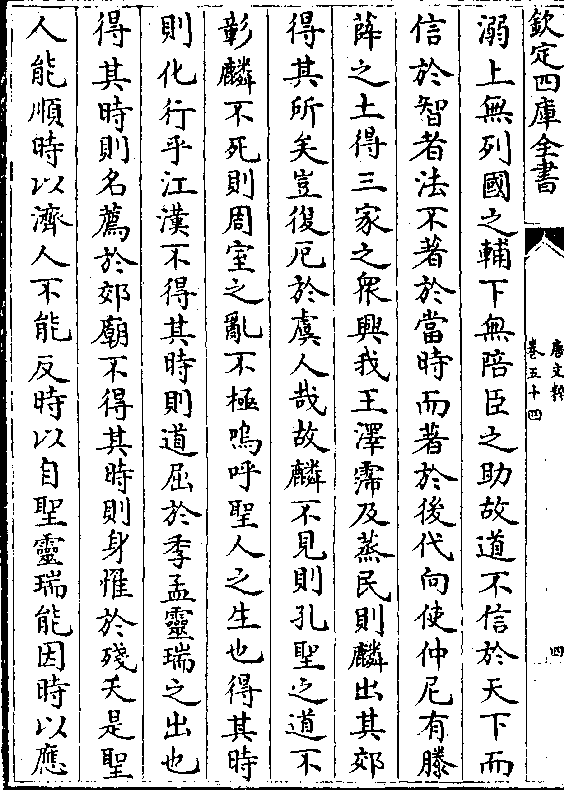 欽定四庫全書
唐文粹
卷五十四
四
溺上無列國之輔下無陪臣之助故道不信於天下而
信於智者法不著於當時而著於後代向使仲尼有滕
薛之土得三家之衆興我王澤霈及蒸民則麟出其郊
得其所矣豈復厄於虞人哉故麟不見則孔聖之道不
彰麟不死則周室之亂不極嗚呼聖人之生也得其時
則化行乎江漢不得其時則道屈於季孟靈瑞之出也
得其時則名薦於郊廟不得其時則身罹於殘夭是聖
人能順時以濟人不能反時以自聖靈瑞能因時以應